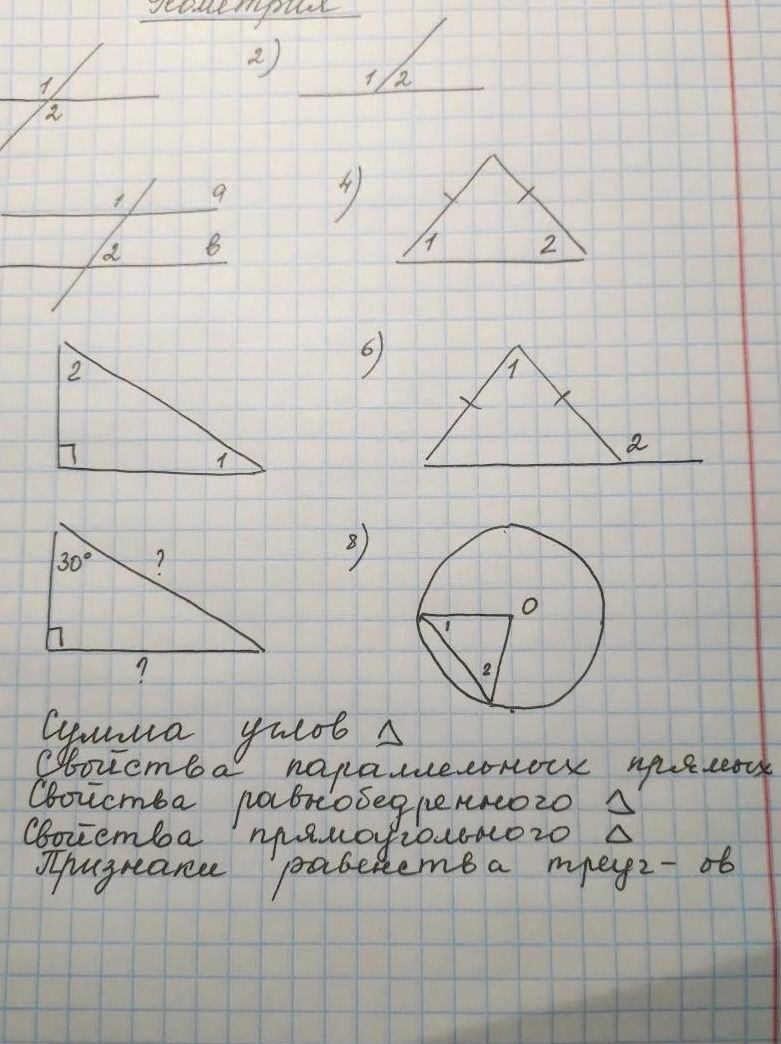 Геометрия
2)
1
2
1 2
4)
1 a
2 в
1 2
6)
2
1
1
2
8)
30° ?
?
O
1
2
Сумма углов △
Свойства параллельных прямых
Свойства равнобедренного △
Свойства прямоугольного △
Признаки равенства треуг-ов